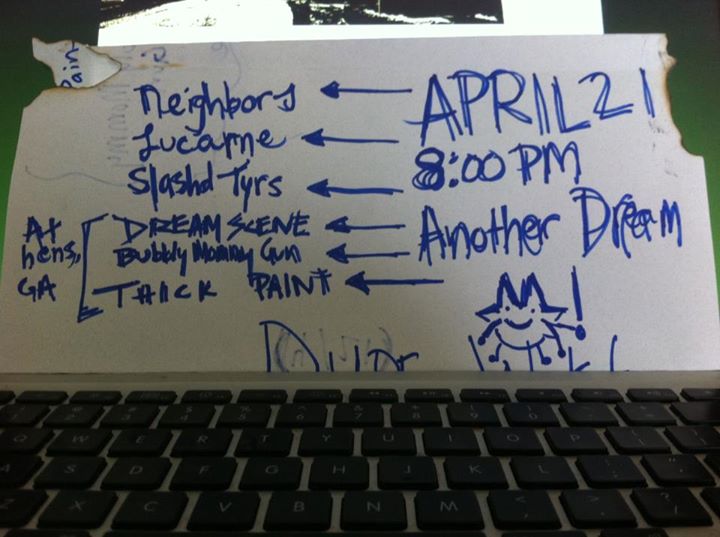 Pain
Neighbors
Lucarne
Slashd Tyrs
DREAM SCENE
Bubbly Mommy Gun
THICK PAINT
At
hens,
GA
APRIL 21
8:00 PM
Another Dream
!
Q W E R T Y U I O P
A S D F G H J K L
Z X C V B N M